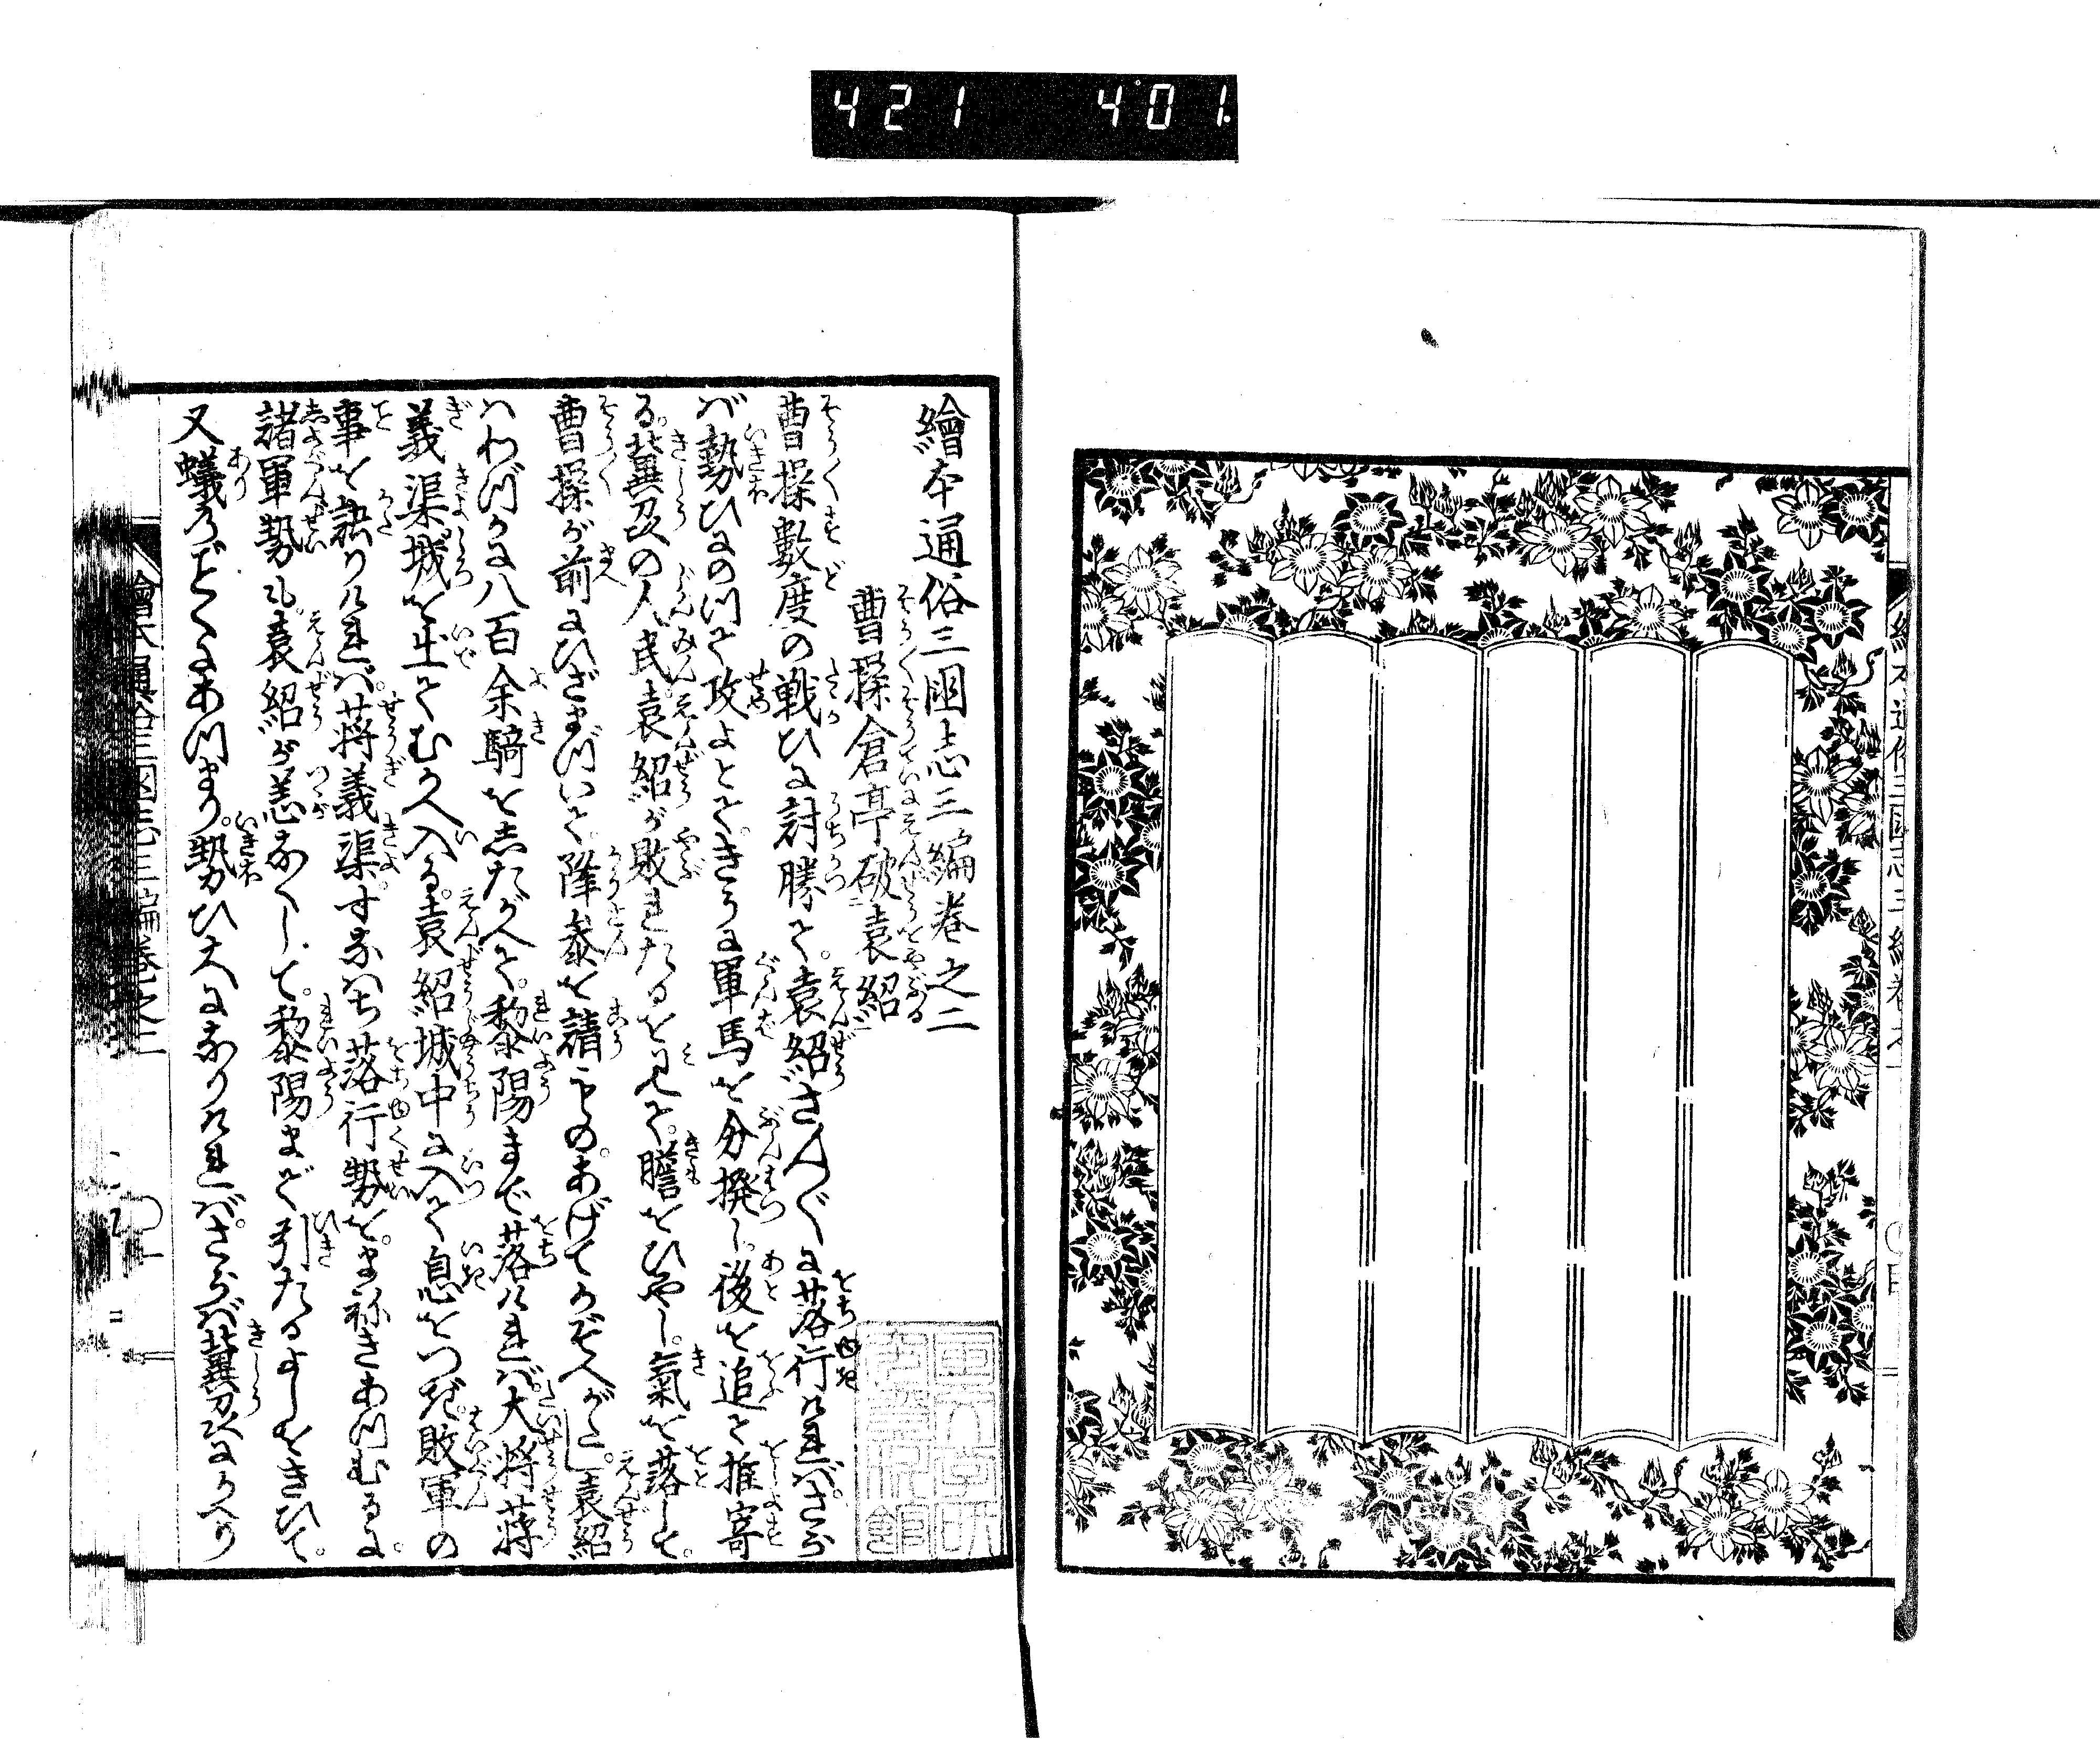 421 401
繪本通俗三國志三編巻之二
曹操倉亭破袁紹
曹操數度の戦ひに討勝て。袁紹さん〲に落行ければ。さら
ば勢ひにのつて攻よとて。きうに軍馬を分撥し。後を追て推寄
る。冀州の人民。袁紹が敗れたるを見て。膽をひやし。氣を落して。
曹操が前にひざまづいて。降参を請ものあげてかぞへがたし。袁紹
はわづかに八百余騎を志たがへて。黎陽まで落ければ。大將蒋
義渠城を出てむかへ入る。袁紹城中に入て息をつぎ。敗軍の
事を訴りければ。蒋義渠。すなはち落行勢を。まねきあつむるに。
諸軍勢も。袁紹が恙なくして。黎陽まで引たるよしをきひて。
又蟻のごとくにあつまり。勢ひ大になりければ。さらば冀州にかへり